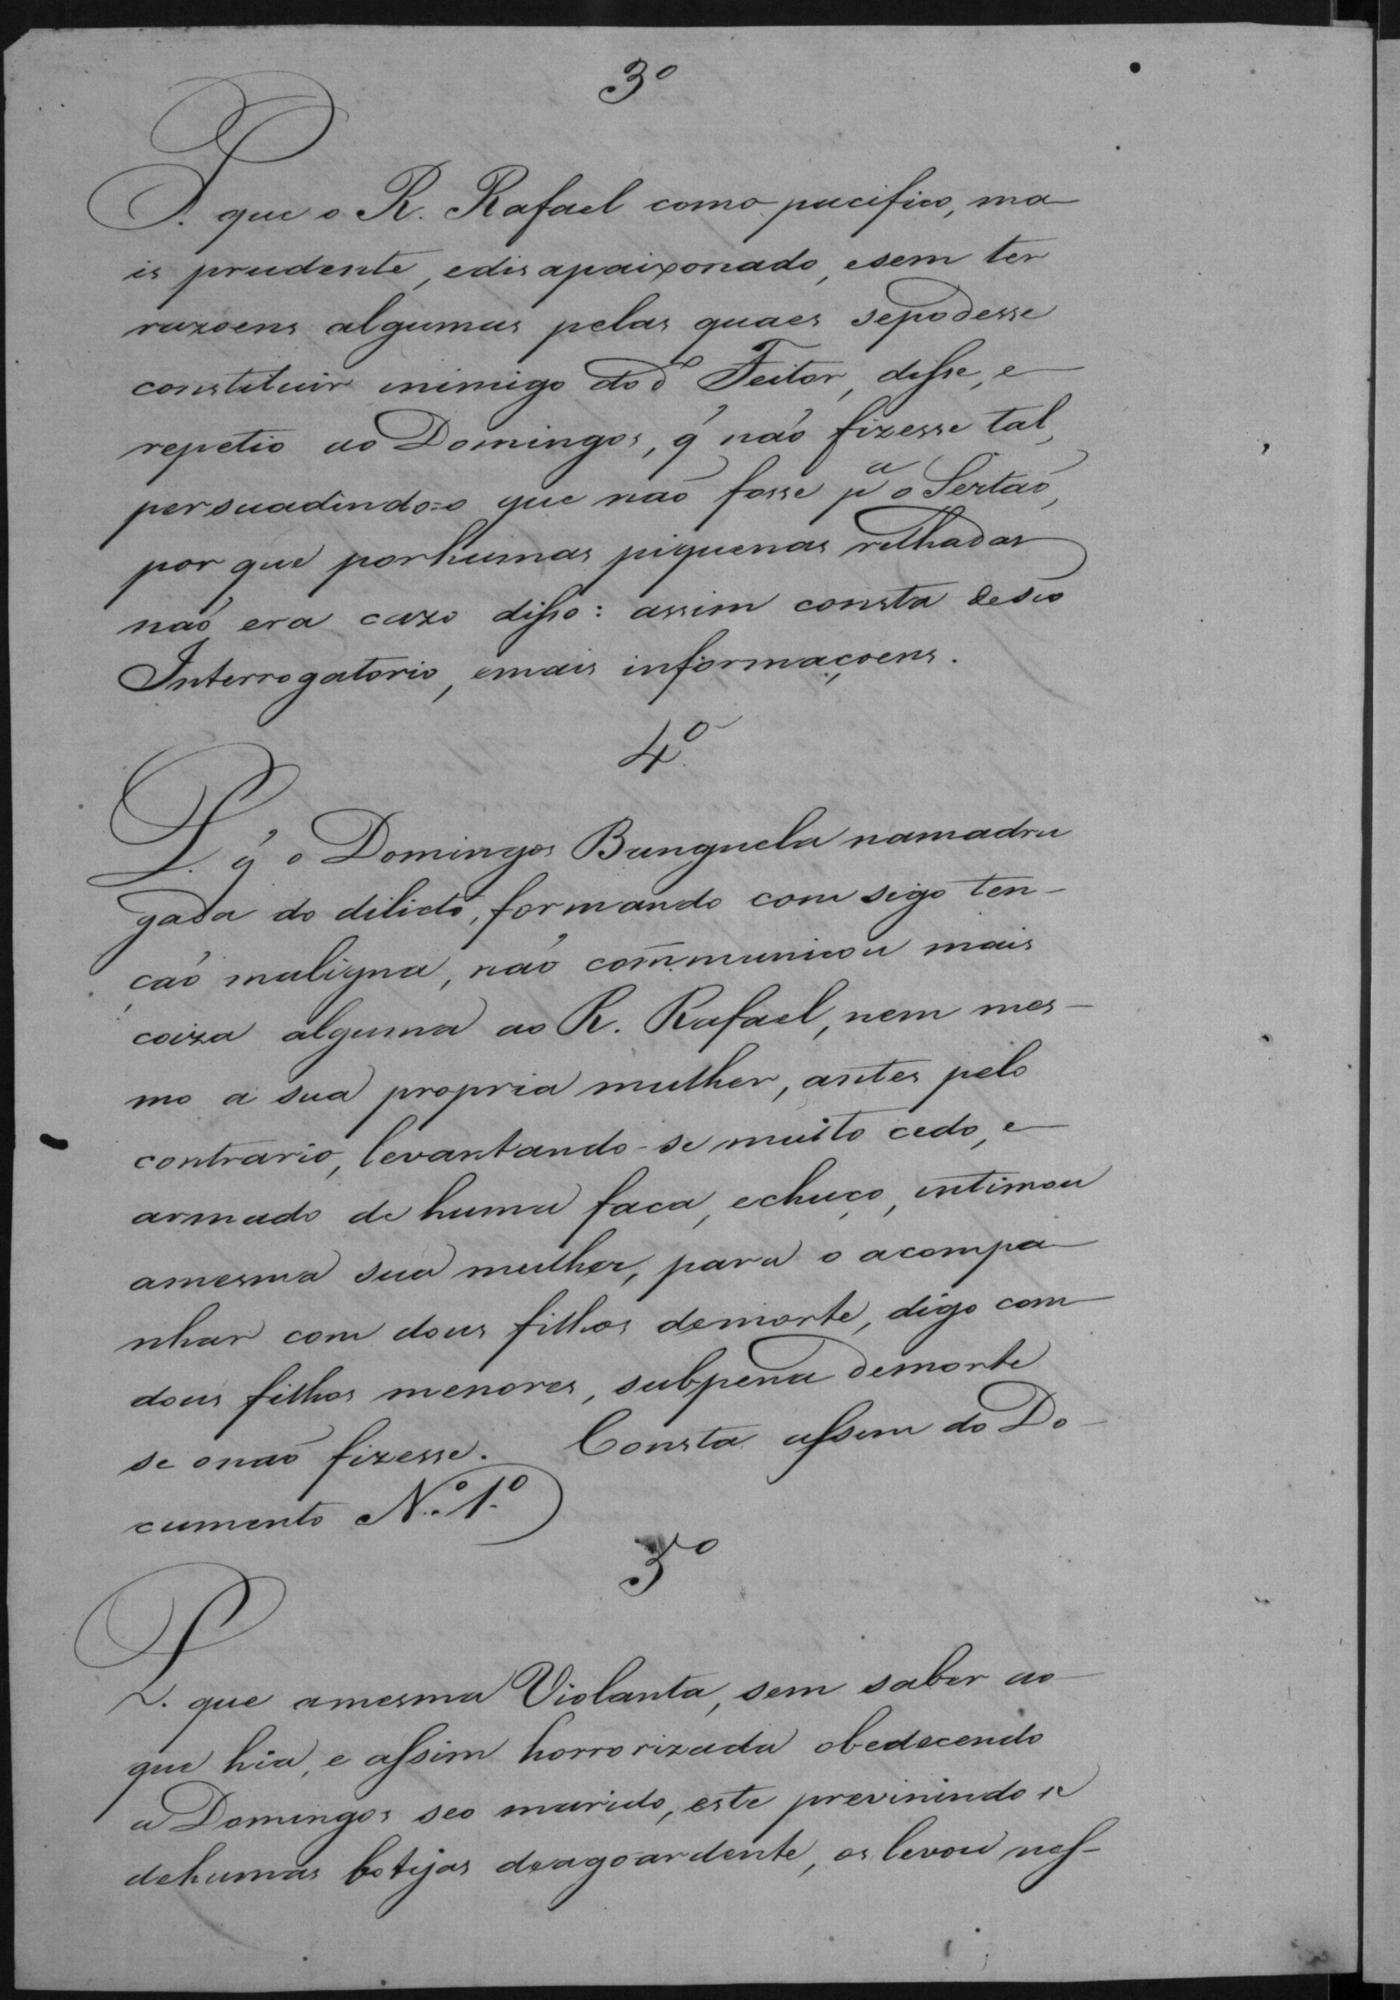 3º
P. que o R. Rafael como pacifico, ma
is prudente, edisapaixonado, esem ter
razoens algumas pelas quaes sepodesse
constituir inimigo do dº Feitor, disse, e
repetio ao Domingos, q̃ não fizesse tal,
persuadindo=o que não fosse pª o Sertão,
por que porhumas piquenas relhadas
não era cazo disso: assim consta deseo
Interrogatorio, emais informaçoens.
4º
P. q̃ o Domingos Banguela namadru
gada do dilicto, formando com sigo ten-
ção maligna, não communicou mais
coiza alguma ao R. Rafael, nem mes-
mo a sua propria mulher, antes pelo
contrario, levantando-se muito cedo, e
armado de huma faca, echuço, intimou
amesma sua mulher, para o acompa
nhar com dous filhos demorte, digo com
dous filhos menores, subpena demorte
se onão fizesse. Consta assim do Do-
cumento N.º 1.º
5º
P. que amesma Violanta, sem saber ao
que hia, e assim horrorizada obedecendo
a Domingos seo marido, este previnindo se
dehumas botijas deagoardente, os levou nes-